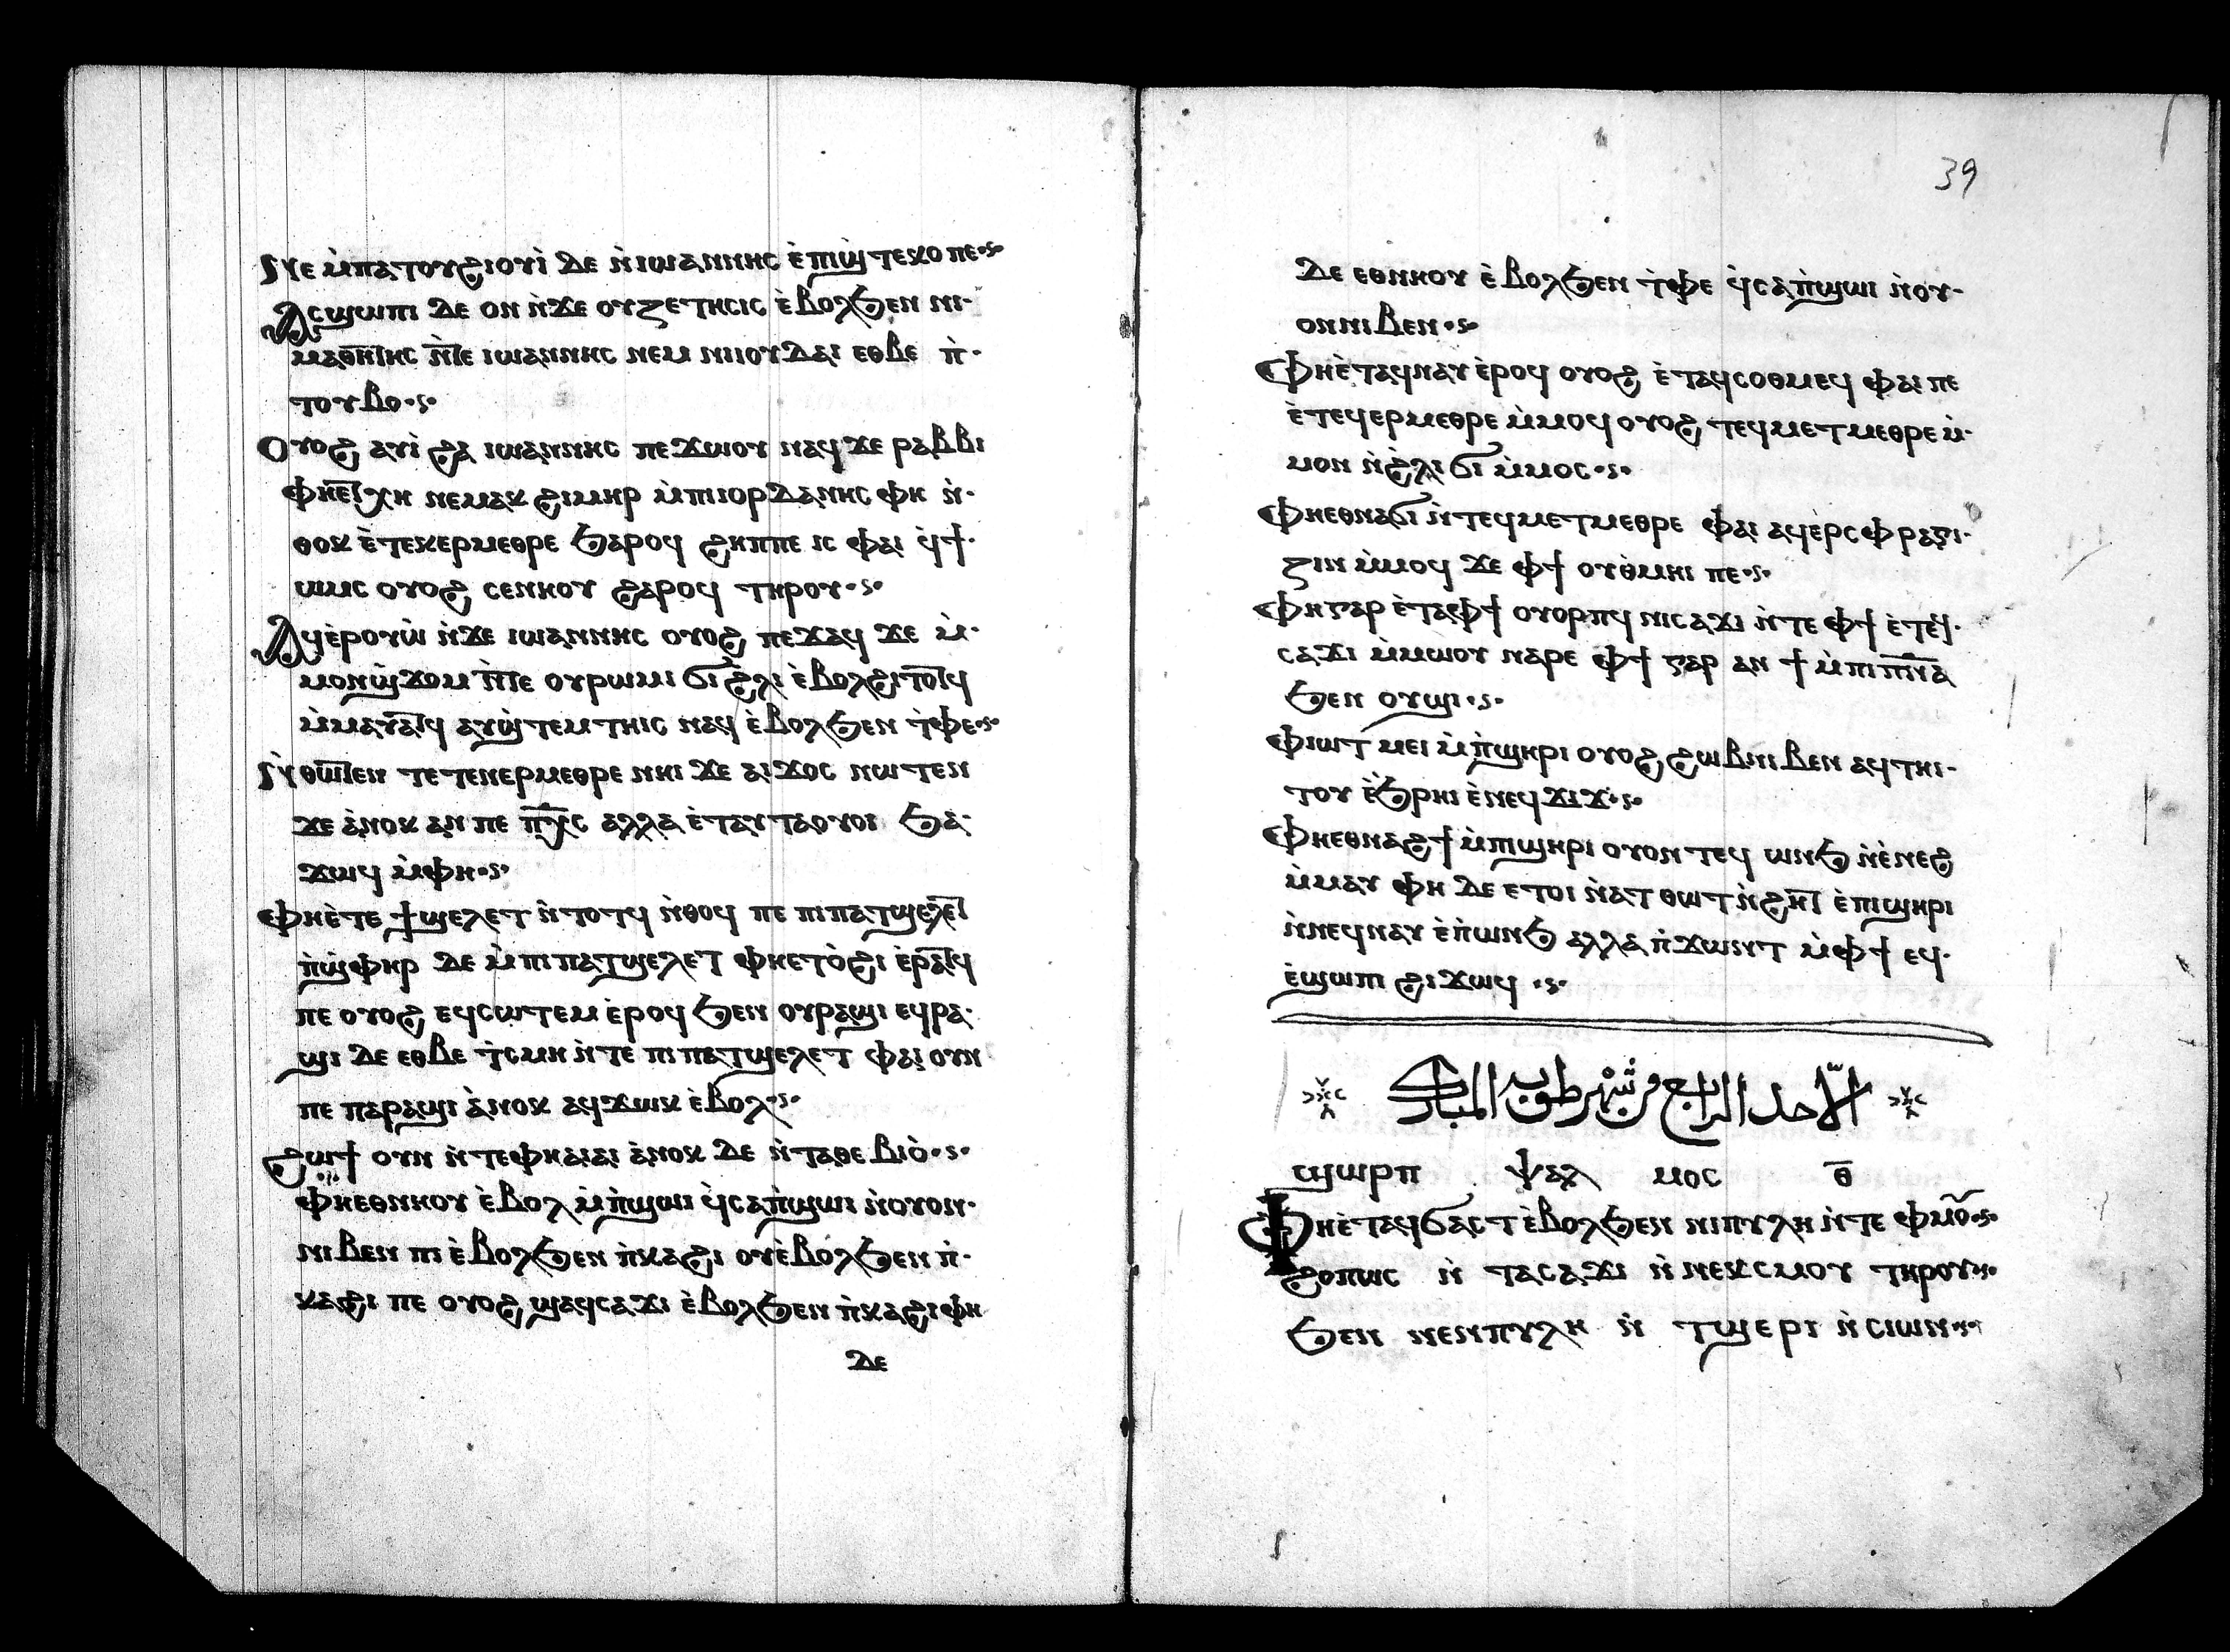 ⲛⲉ ⲙ̀ⲡⲁⲧⲟⲩϩⲓⲟⲩⲓ̀ ⲇⲉ ⲛ̀ⲓⲱⲁⲛⲛⲏⲥ ⲉ̀ⲡⲓϣ̀ⲧⲉⲕⲟ ⲡⲉ
ⲁⲥϣⲱⲡⲓ ⲇⲉ ⲟⲛ ⲛ̀ϫⲉ ⲟⲩⲍⲉⲧⲏⲥⲓⲥ ⲉ̀ⲃⲟⲗϧⲉⲛ ⲛⲓ-
ⲙⲁⲑⲏⲧⲏⲥ ⲛ̀ⲧⲉ ⲓⲱⲁⲛⲛⲏⲥ ⲛⲉⲙ ⲛⲓⲓⲟⲩⲇⲁⲓ ⲉⲑⲃⲉ ⲡ̀-
ⲧⲟⲩⲃⲟ
ⲟⲩⲟϩ ⲁⲩⲓ̀ ϩⲁ ⲓⲱⲁⲛⲛⲏⲥ ⲡⲉϫⲱⲟⲩ ⲛⲁϥ ϫⲉ ⲣⲁⲃⲃⲓ
ⲫⲏⲉⲧⲭⲏ ⲛⲉⲙⲁⲕ ϩⲓⲙⲏⲣ ⲙ̀ⲡⲓⲓⲟⲣⲇⲁⲛⲏⲥ ⲫⲏ ⲛ̀-
ⲑⲟⲕ ⲉ̀ⲧⲉⲕⲉⲣⲙⲉⲑⲣⲉ ϧⲁⲣⲟϥ ϩⲏⲡⲡⲉ ⲓⲥ ⲫⲁⲓ ϥ̀ϯ-
ⲱⲙⲥ ⲟⲩⲟϩ ⲥⲉⲛⲏⲟⲩ ϩⲁⲣⲟϥ ⲧⲏⲣⲟⲩ
ⲁϥⲉ̀ⲣⲟⲩⲱ̀ ⲛ̀ϫⲉ ⲓⲱⲁⲛⲛⲏⲥ ⲟⲩⲟϩ ⲡⲉϫⲁϥ ϫⲉ ⲙ̀-
ⲙⲟⲛϣ̀ϫⲟⲙ ⲛ̀ⲧⲉ ⲟⲩⲣⲱⲙⲓ ϭⲓ ϩ̀ⲗⲓ ⲉ̀ⲃⲟⲗϩⲓⲧⲟⲧϥ
ⲙ̀ⲙⲁⲩⲁⲧϥ ⲁⲩϣ̀ⲧⲉⲙⲧⲏⲓⲥ ⲛⲁϥ ⲉ̀ⲃⲟⲗϧⲉⲛ ⲧ̀ⲫⲉ
ⲛⲑⲱⲧⲉⲛ ⲧⲉⲧⲉⲛⲉⲣⲙⲉⲑⲣⲉ ⲛⲏⲓ ϫⲉ ⲁⲓϫⲟⲥ ⲛⲱⲧⲉⲛ
ϫⲉ ⲁ̀ⲛⲟⲕ ⲁⲛ ⲡⲉ ⲡⲭ̅ⲥ ⲁⲗⲗⲁ ⲉ̀ⲧⲁⲩⲧⲁⲟⲩⲟⲓ ϧⲁ-
ϫⲱϥ ⲙ̀ⲫⲏ
ⲫⲏⲉ̀ⲧⲉ ϯϣⲉⲗⲉⲧ ⲛ̀ⲧⲟⲧϥ ⲛ̀ⲑⲟϥ ⲡⲉ ⲡⲓⲡⲁⲧϣⲉⲗⲉⲧ
ⲡ̀ϣ̀ⲫⲏⲣ ⲇⲉ ⲙ̀ⲡⲓⲡⲁⲧϣⲉⲗⲉⲧ ⲫⲏⲉⲧⲟ̀ϩⲓ ⲉ̀ⲣⲁⲧϥ
ⲡⲉ ⲟⲩⲟϩ ⲉϥⲥⲱⲧⲉⲙ ⲉ̀ⲣⲟϥ ϧⲉⲛ ⲟⲩⲣⲁϣⲓ ⲉϥⲣⲁ-
ϣⲓ ⲇⲉ ⲉⲑⲃⲉ ⲧ̀ⲥⲙⲏ ⲛ̀ⲧⲉ ⲡⲓⲡⲁⲧϣⲉⲗⲉⲧ ⲫⲁⲓ ⲟⲩⲛ
ⲡⲉ ⲡⲁⲣⲁϣⲓ ⲁ̀ⲛⲟⲕ ⲁϥϫⲱⲕ ⲉ̀ⲃⲟⲗ
ϩⲱϯ ⲟⲩⲛ ⲛ̀ⲧⲉⲫⲏⲁⲓⲁⲓ ⲁ̀ⲛⲟⲕ ⲇⲉ ⲛ̀ⲧⲁⲑⲉⲃⲓⲟ̀
ⲫⲏⲉⲑⲛⲏⲟⲩ ⲉ̀ⲃⲟⲗ ⲙ̀ⲡ̀ϣⲱⲓ ϥ̀ⲥⲁⲡ̀ϣⲱⲓ ⲛ̀ⲟⲩⲟⲛ-
ⲛⲓⲃⲉⲛ ⲡⲓ ⲉ̀ⲃⲟⲗϧⲉⲛ ⲡ̀ⲕⲁϩⲓ ⲟⲩⲉ̀ⲃⲟⲗϧⲉⲛ ⲡ̀-
ⲕⲁϩⲓ ⲡⲉ ⲟⲩⲟϩ ϣⲁϥⲥⲁϫⲓ ⲉ̀ⲃⲟⲗϧⲉⲛ ⲡ̀ⲕⲁϩⲓ ⲫⲏ
ⲇⲉ
39
ⲇⲉ ⲉⲑⲛⲏⲟⲩ ⲉ̀ⲃⲟⲗϧⲉⲛ ⲧ̀ⲫⲉ ϥ̀ⲥⲁⲡ̀ϣⲱⲓ ⲛ̀ⲟⲩ-
ⲟⲛⲛⲓⲃⲉⲛ
ⲫⲏⲉ̀ⲧⲁϥⲛⲁⲩ ⲉ̀ⲣⲟϥ ⲟⲩⲟϩ ⲉ̀ⲧⲁϥⲥⲟⲑⲙⲉϥ ⲫⲁⲓ ⲡⲉ
ⲉ̀ⲧⲉϥⲉⲣⲙⲉⲑⲣⲉ ⲙ̀ⲙⲟϥ ⲟⲩⲟϩ ⲧⲉϥⲙⲉⲧⲙⲉⲑⲣⲉ ⲙ̀-
ⲙⲟⲛ ⲛ̀ϩ̀ⲗⲓ ϭⲓ ⲙ̀ⲙⲟⲥ
ⲫⲏⲉⲑⲛⲁϭⲓ ⲛ̀ⲧⲉϥⲙⲉⲧⲙⲉⲑⲣⲉ ⲫⲁⲓ ⲁϥⲉ̀ⲣⲥⲫⲣⲁⲅⲓ-
ⲍⲓⲛ ⲙ̀ⲙⲟϥ ϫⲉ ⲫϯ ⲟⲩⲑ̀ⲙⲏⲓ ⲡⲉ
ⲫⲏⲅⲁⲣ ⲉ̀ⲧⲁⲫϯ ⲟⲩⲟⲣⲡϥ ⲛⲓⲥⲁϫⲓ ⲛ̀ⲧⲉ ⲫϯ ⲉ̀ⲧⲉϥ̀-
ⲥⲁϫⲓ ⲙ̀ⲙⲱⲟⲩ ⲛⲁⲣⲉ ⲫϯ ⲅⲁⲣ ⲁⲛ ϯ ⲙ̀ⲡⲓⲡ̅ⲛ̅ⲁ
ϧⲉⲛ ⲟⲩϣⲓ
ⲫⲓⲱⲧ ⲙⲉⲓ ⲙ̀ⲡ̀ϣⲏⲣⲓ ⲟⲩⲟϩ ϩⲱⲃⲛⲓⲃⲉⲛ ⲁϥⲧⲏⲓ-
ⲧⲟⲩ ⲉ̀ϧⲣⲏⲓ ⲉ̀ⲛⲉϥϫⲓϫ
ⲫⲏⲉⲑⲛⲁϩϯ ⲙ̀ⲡⲓϣⲏⲣⲓ ⲟⲩⲟⲛⲧⲉϥ ⲱⲛϧ ⲛ̀ⲉ̀ⲛⲉϩ
ⲙ̀ⲙⲁⲩ ⲫⲏ ⲇⲉ ⲉⲧⲟⲓ ⲛ̀ⲁⲧⲑⲱⲧ ⲛ̀ϩⲏⲧ ⲉ̀ⲡⲓϣⲏⲣⲓ
ⲛ̀ⲛⲉϥⲛⲁⲩ ⲉ̀ⲡ̀ⲱⲛϧ ⲁⲗⲗⲁ ⲡ̀ϫⲱⲛⲧ ⲙ̀ⲫϯ ⲉϥ-
ⲉ̀ϣⲱⲡⲓ ϩⲓϫⲱϥ
الاحد الرابع من شهر طوبه المبارك
ϣⲱⲣⲡ ⲯⲁⲗ ⲙⲟⲥ ⲑ̅
ⲫⲏⲉ̀ⲧⲁϥϭⲁⲥⲧ ⲉ̀ⲃⲟⲗϧⲉⲛ ⲛⲓⲡⲩⲗⲏ ⲛ̀ⲧⲉ ⲫⲙⲟ̅
ϩⲟⲡⲱⲥ ⲛ̀ ⲧⲁⲥⲁϫⲓ ⲛ̀ ⲛⲉⲕⲥⲙⲟⲩ ⲧⲏⲣⲟⲩ
ϧⲉⲛ ⲛⲉⲛⲡⲩⲗⲏ ⲛ̀ ⲧϣⲉⲣⲓ ⲛ̀ⲥⲓⲱⲛ